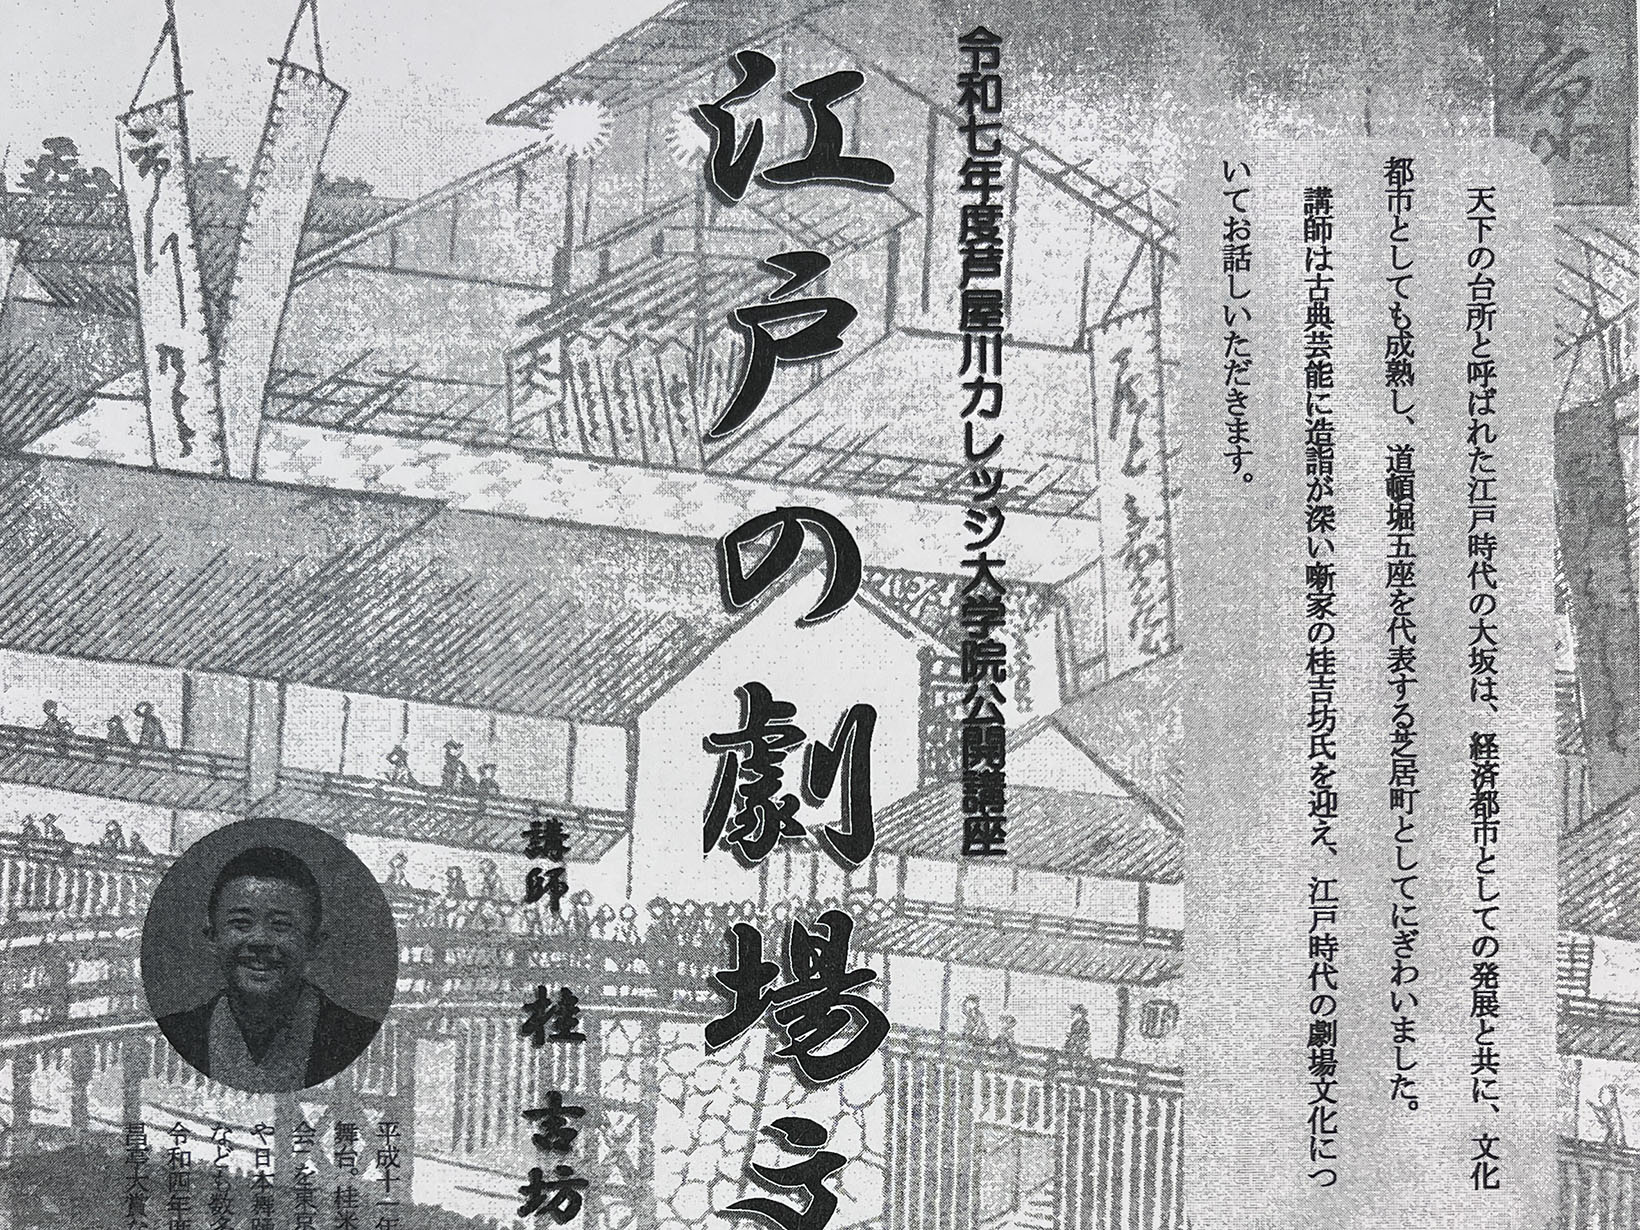 天下の台所と呼ばれた江戸時代の大坂は、経済都市としての発展と共に、文化
都市としても成熟し、道頓堀五座を代表する芝居町としてにぎわいました。
講師は古典芸能に造詣が深い噺家の桂吉坊氏を迎え、江戸時代の劇場文化につ
いてお話しいただきます。
令和七年度芦屋川カレッジ大学院公開講座
江戸の劇場
講師 桂 吉坊
平成十一年
舞台。桂米
会」を東京
や日本舞踊
なども数多
令和四年度
昌亭大賞